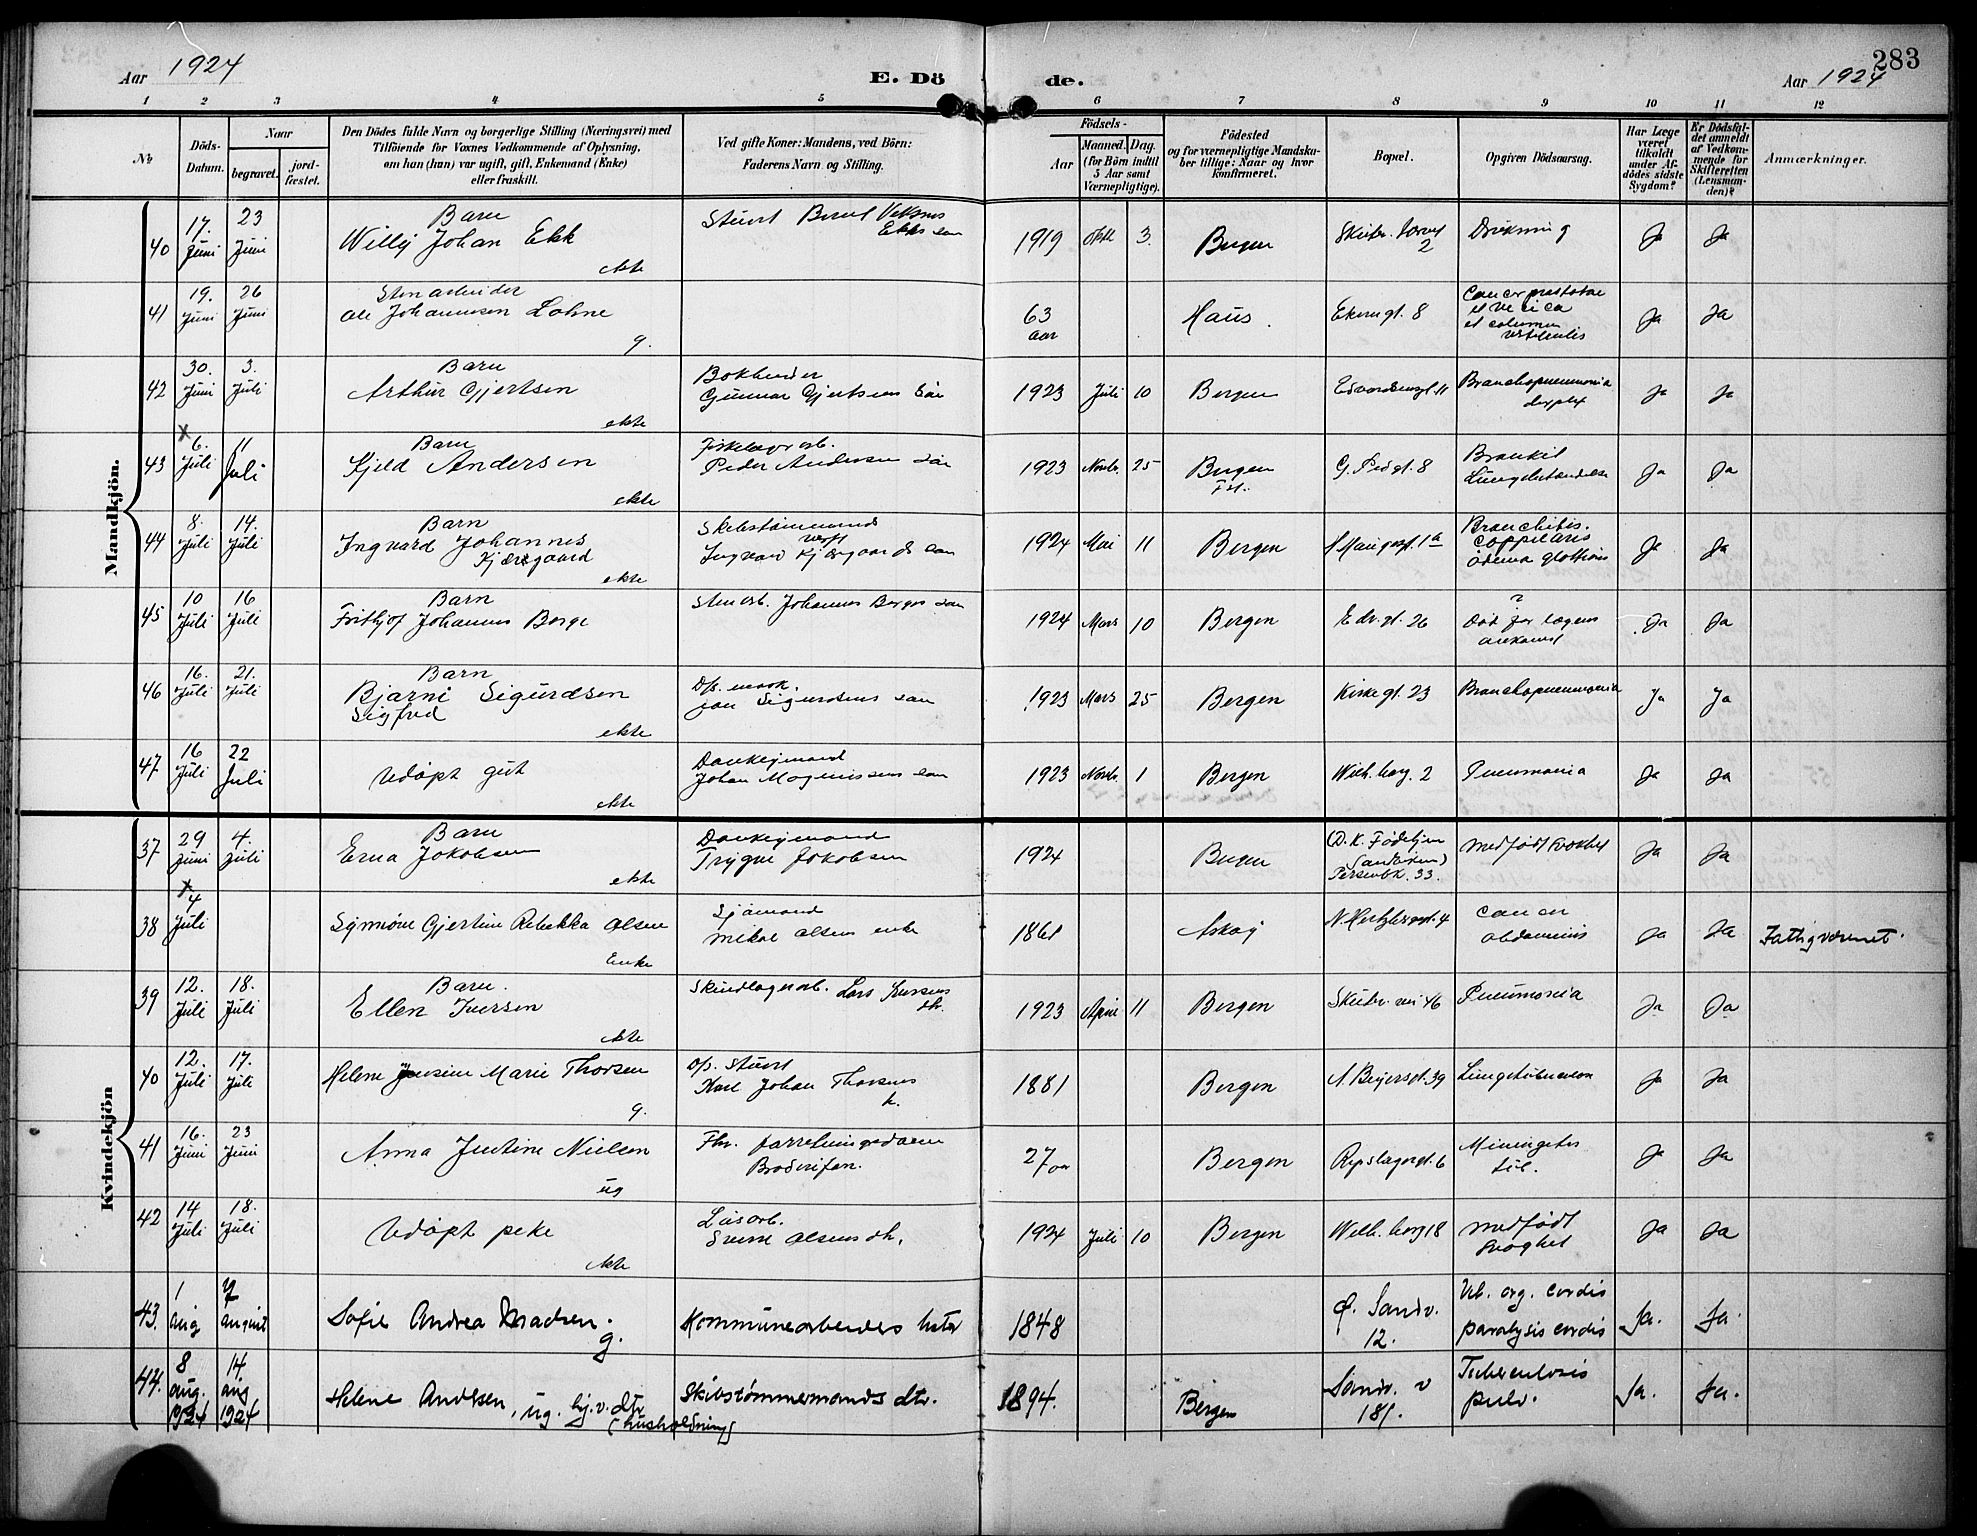 283
Aar 1924
E. Dö de.
Aar 1924
1 2 3 4 5 6 7 8 9 10 11 12
No
Döds-Datum.
Naar
begravet.
jord-fæstet.
Den Dödes fulde Navn og borgerlige Stilling (Næringsvei) med
Tilföiende for Voxnes Vedkommende af Oplysning,
om han (hun) var ugift, gift, Enkemand (Enke)
eller fraskilt.
Ved gifte Koner: Mandens, ved Börn:
Faderens Navn og Stilling.
Födsels-
Aar
Maaned. Dag.
(for Börn indtil
5 Aar samt
Værnepligtige).
Födested
og for værnepligtige Mandska-
ber tillige: Naar og hvor
konfirmeret.
Bopæl.
Opgiven Dödsaarsag.
Har Læge
været
tilkaldt
under Af-
dödes sidste
Sygdom?
Er Dödsfal-
det anmeldt
af Vedkom-
mende for
Skifteretten
(Lensman-
den)?
Anmærkninger.
Mandkjön.
40 17. Juni 23 Juni Barn Willy Johan Ekk ekte Stuert 1919 Okt 3. Bergen 2 Drukning Ja Ja
41 19. Juni 26 Juni Stenarbeider Ole Johannesen Lohne g. 63 aar Haus. Ekrengt. 8 Cancer prostatae et vesica et columna vertebralis Ja Ja
42 30. Juni 3. Juli Barn Arthur Gjertsen ekte Gunnar Gjertsens søn 1923 Juli 10 Bergen 11 Bronchopneumonia Ja Ja
43 x 6. Juli 11 Juli Barn Kjeld Andersen ekte Peder Andersens søn 1923 Novbr. 25 Bergen 8 Ja Ja
44 8. Juli 14. Juli Barn Ingvard Johannes Kjærgaard ekte Ingvard Kjærgaards søn 1924 Mai 11 Bergen 1a Bronchitis. Ja Ja
45 10 Juli 16 Juli Barn Frithjof Johannes Berge Stenarb. Johannes Berges søn 1924 Mars 10 Bergen Edv.gt. 26 ? Død før lægens ankomst Ja Ja
46 16. Juli 21. Juli Barn Bjarne Sigurdsen Sigfred ekte D/s. mask. Sigurdsens søn 1923 Mars 25 Bergen Kirkegt. 23 Bronchopneumonia Ja Ja
47 16 Juli 22 Juli Udøpt gut ekte Donkeymand Johan Magnussens søn 1923 Novbr. 1 Bergen Wilh. haug. 2 Pneumonia Ja Ja
Kvindekjön
37 29 Juni 4. Juli Barn Erna Jokobsen ekte Donkeymand Trygve Jokobsen 1924 Bergen 33. medfødt svakhet Ja Ja
38 x 4 Juli Synnöve Gjertine Rebekka Olsen Enke Sjømand Mikal Olsens enke 1861 Askøy 4 Cancer abdominis Ja Ja Fattigvæsenet.
39 12. Juli 18. Juli Barn. Ellen Iversen ekte Lars Iversens dtr. 1923 April 11 Bergen 46 Pneumonia Ja Ja
40 12. Juli 17. Juli Helene Jensine Marie Thorsen g. D/s. Stuert Karl Johan Thorsens h. 1881 Bergen 39 Lungetuberculose Ja Ja
41 16. Juni 23 Juni Anna Justine Nielsen ug Fhv. forretningsdame Broderifor. 27 aar Bergen Repslagergt. 6 Ja Ja
42 14 Juli 18. Juli Udøpt pike ekte Olsens dtr. 1924 Juli 10 Bergen Wilh. haug 18 medfødt svaghet Ja Ja
43. 1 aug 7 august Sofie Andrea Madsen. g. Kommunearbeiders hstr 1848 Ø. Sandv. 12. Vit. org. cordis paralysis cordis Ja. Ja.
44. 8 aug. 1924 14. aug 1924 Helene Andersen, ug. hj.v. dtr (husholdning) Skibstømmermands dtr. 1894. Bergen Sandv. v 181. Tuberculosis pulv. Ja. Ja.